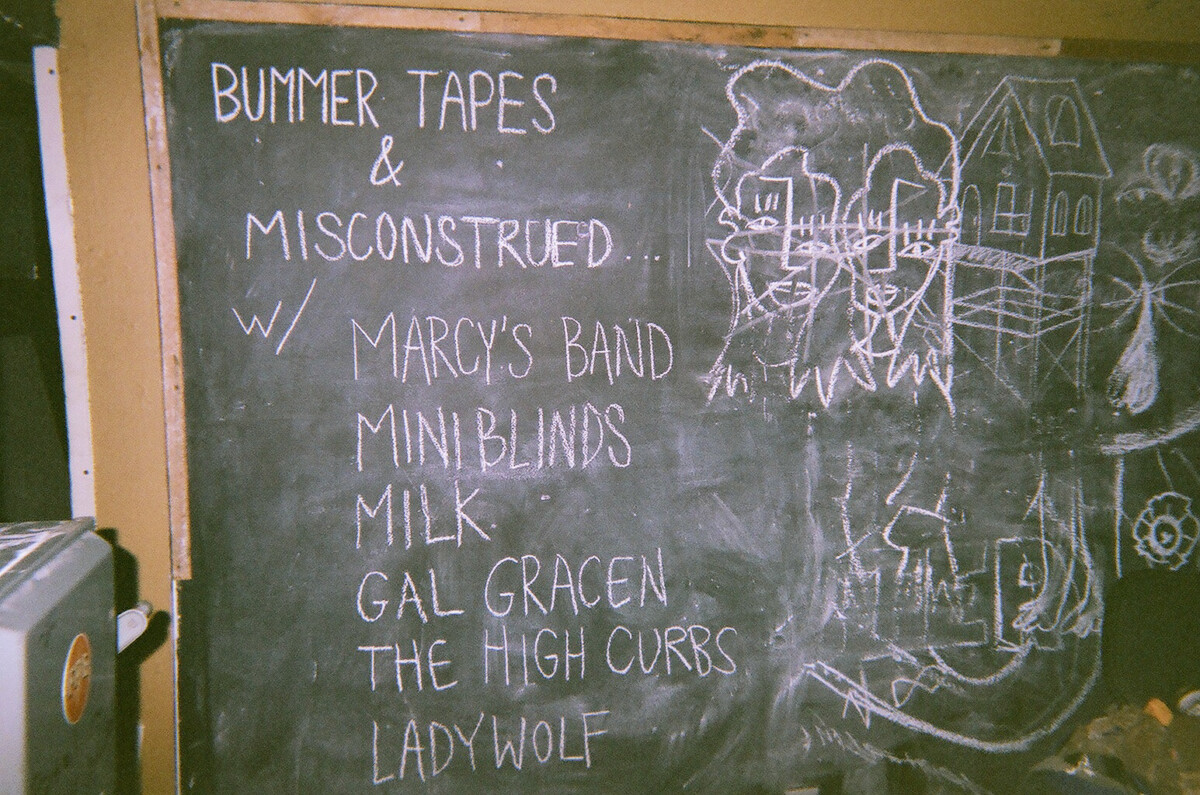 BUMMER TAPES
&
MISCONSTRUED...
W/ MARCY'S BAND
MINIBLINDS
MILK
GAL GRACEN
THE HIGH CURBS
LADYWOLF